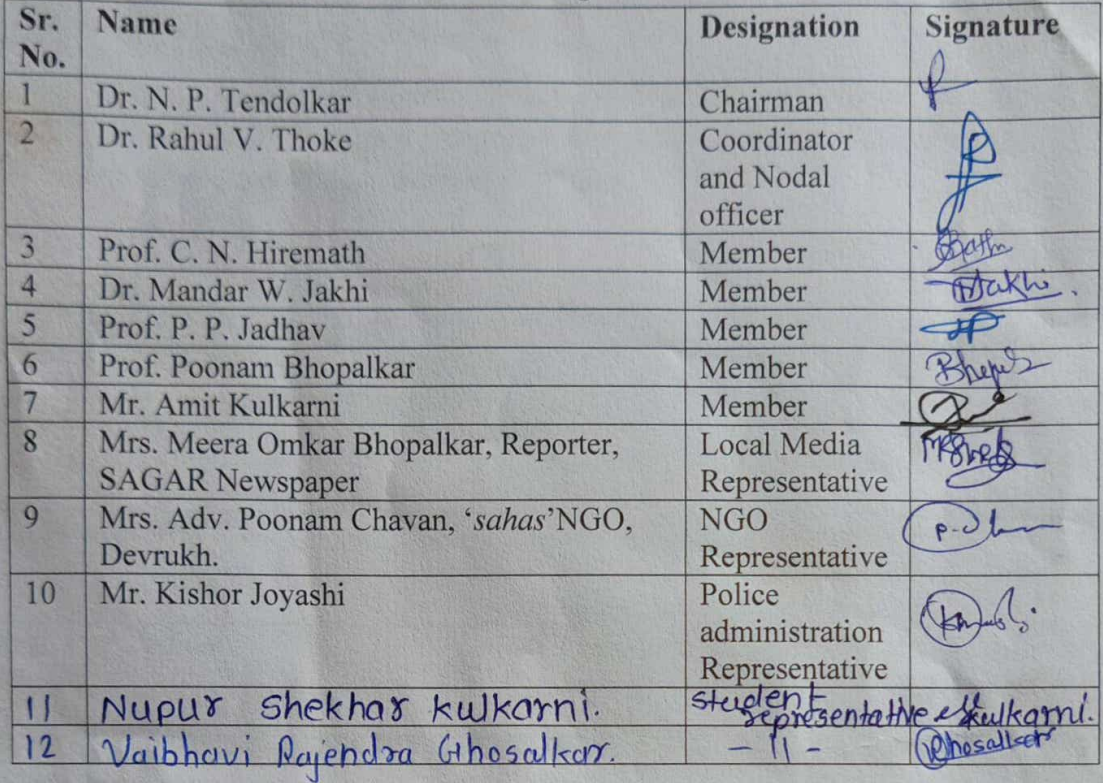 Sr. No. Name Designation Signature
1 Dr. N. P. Tendolkar Chairman
2 Dr. Rahul V. Thoke Coordinator
and Nodal
officer
3 Prof. C. N. Hiremath Member
4 Dr. Mandar W. Jakhi Member
5 Prof. P. P. Jadhav Member
6 Prof. Poonam Bhopalkar Member
7 Mr. Amit Kulkarni Member
8 Mrs. Meera Omkar Bhopalkar, Reporter, Local Media
SAGAR Newspaper Representative
9 Mrs. Adv. Poonam Chavan, ‘sahas’NGO, NGO
Devrukh. Representative
10 Mr. Kishor Joyashi Police
administration
Representative
11 Nupur Shekhar kulkarni. student
representative kulkarni.
12 Vaibhavi Rajendra Ghosalkar. - 11 - Ghosalkar